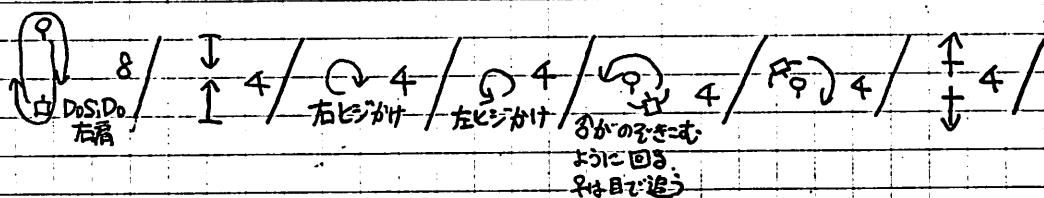 8 / 4 / 4 / 4 / 4 / 4 / 4 /
DoSiDo
右肩
右ヒジかけ
左ヒジかけ
♂がのぞきこむ
ように回る.
♀は目で追う